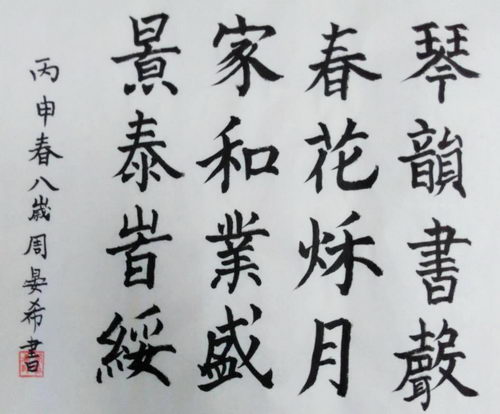 琴韻書聲
春花秌月
家和業盛
景泰峕綏
丙申春八歲周晏希書